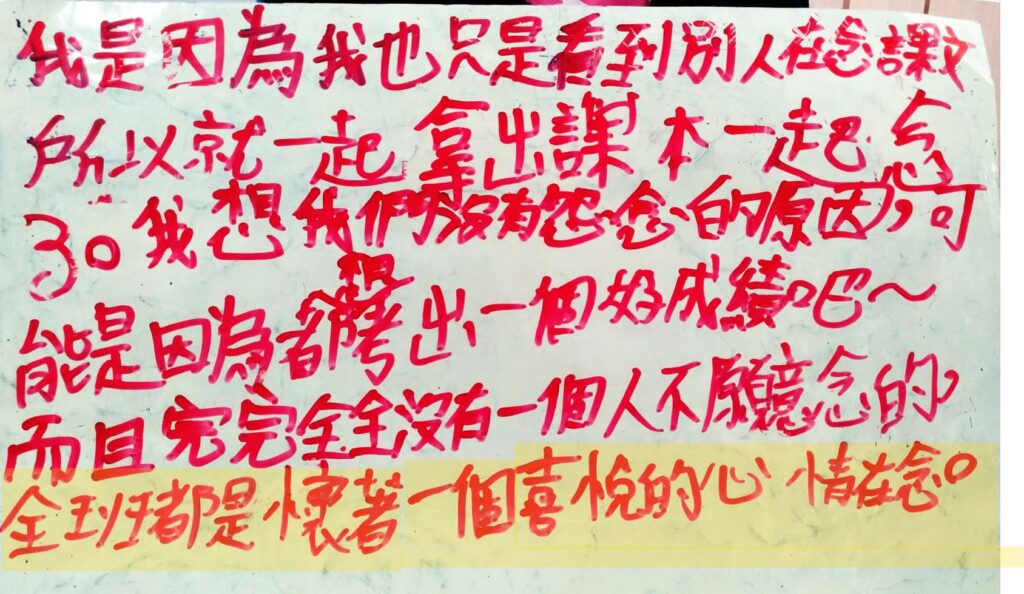 我是因為我也只是看到別人在念課文
所以就一起拿出課本一起念
了。我想我們沒有怨念的原因,可
能是因為都想考出一個好成績吧~
而且完完全全沒有一個人不願意念的,
全班都是懷著一個喜悅的心情在念。